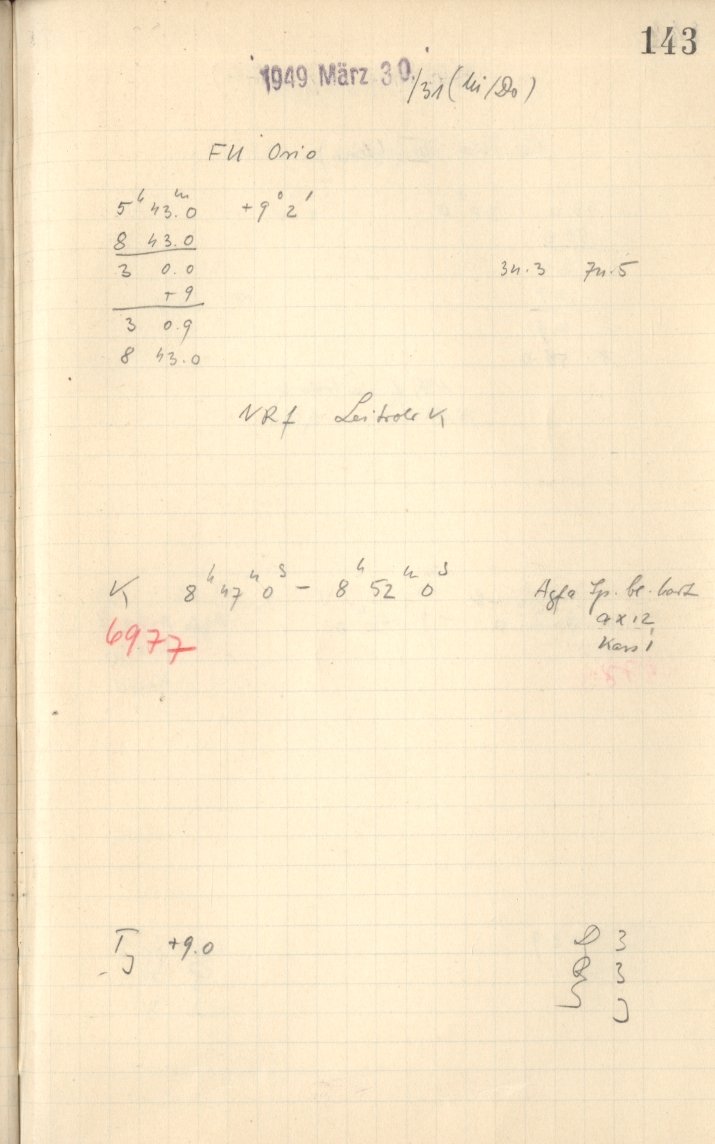 143
1949 März 30./31 (Mi/Do)
FU Orio
5h 43.m0 +9° 2'
8 43.0
3 0.0
+9
3 0.9
8 43.0
3n.3 7n.5
NRf Leitrohr K
K 8h 47m 0s – 8h 52m 0s
Agfa Sp. bl. hart
9x12
Kass 1
6977
T +9.0
D 3
R 3